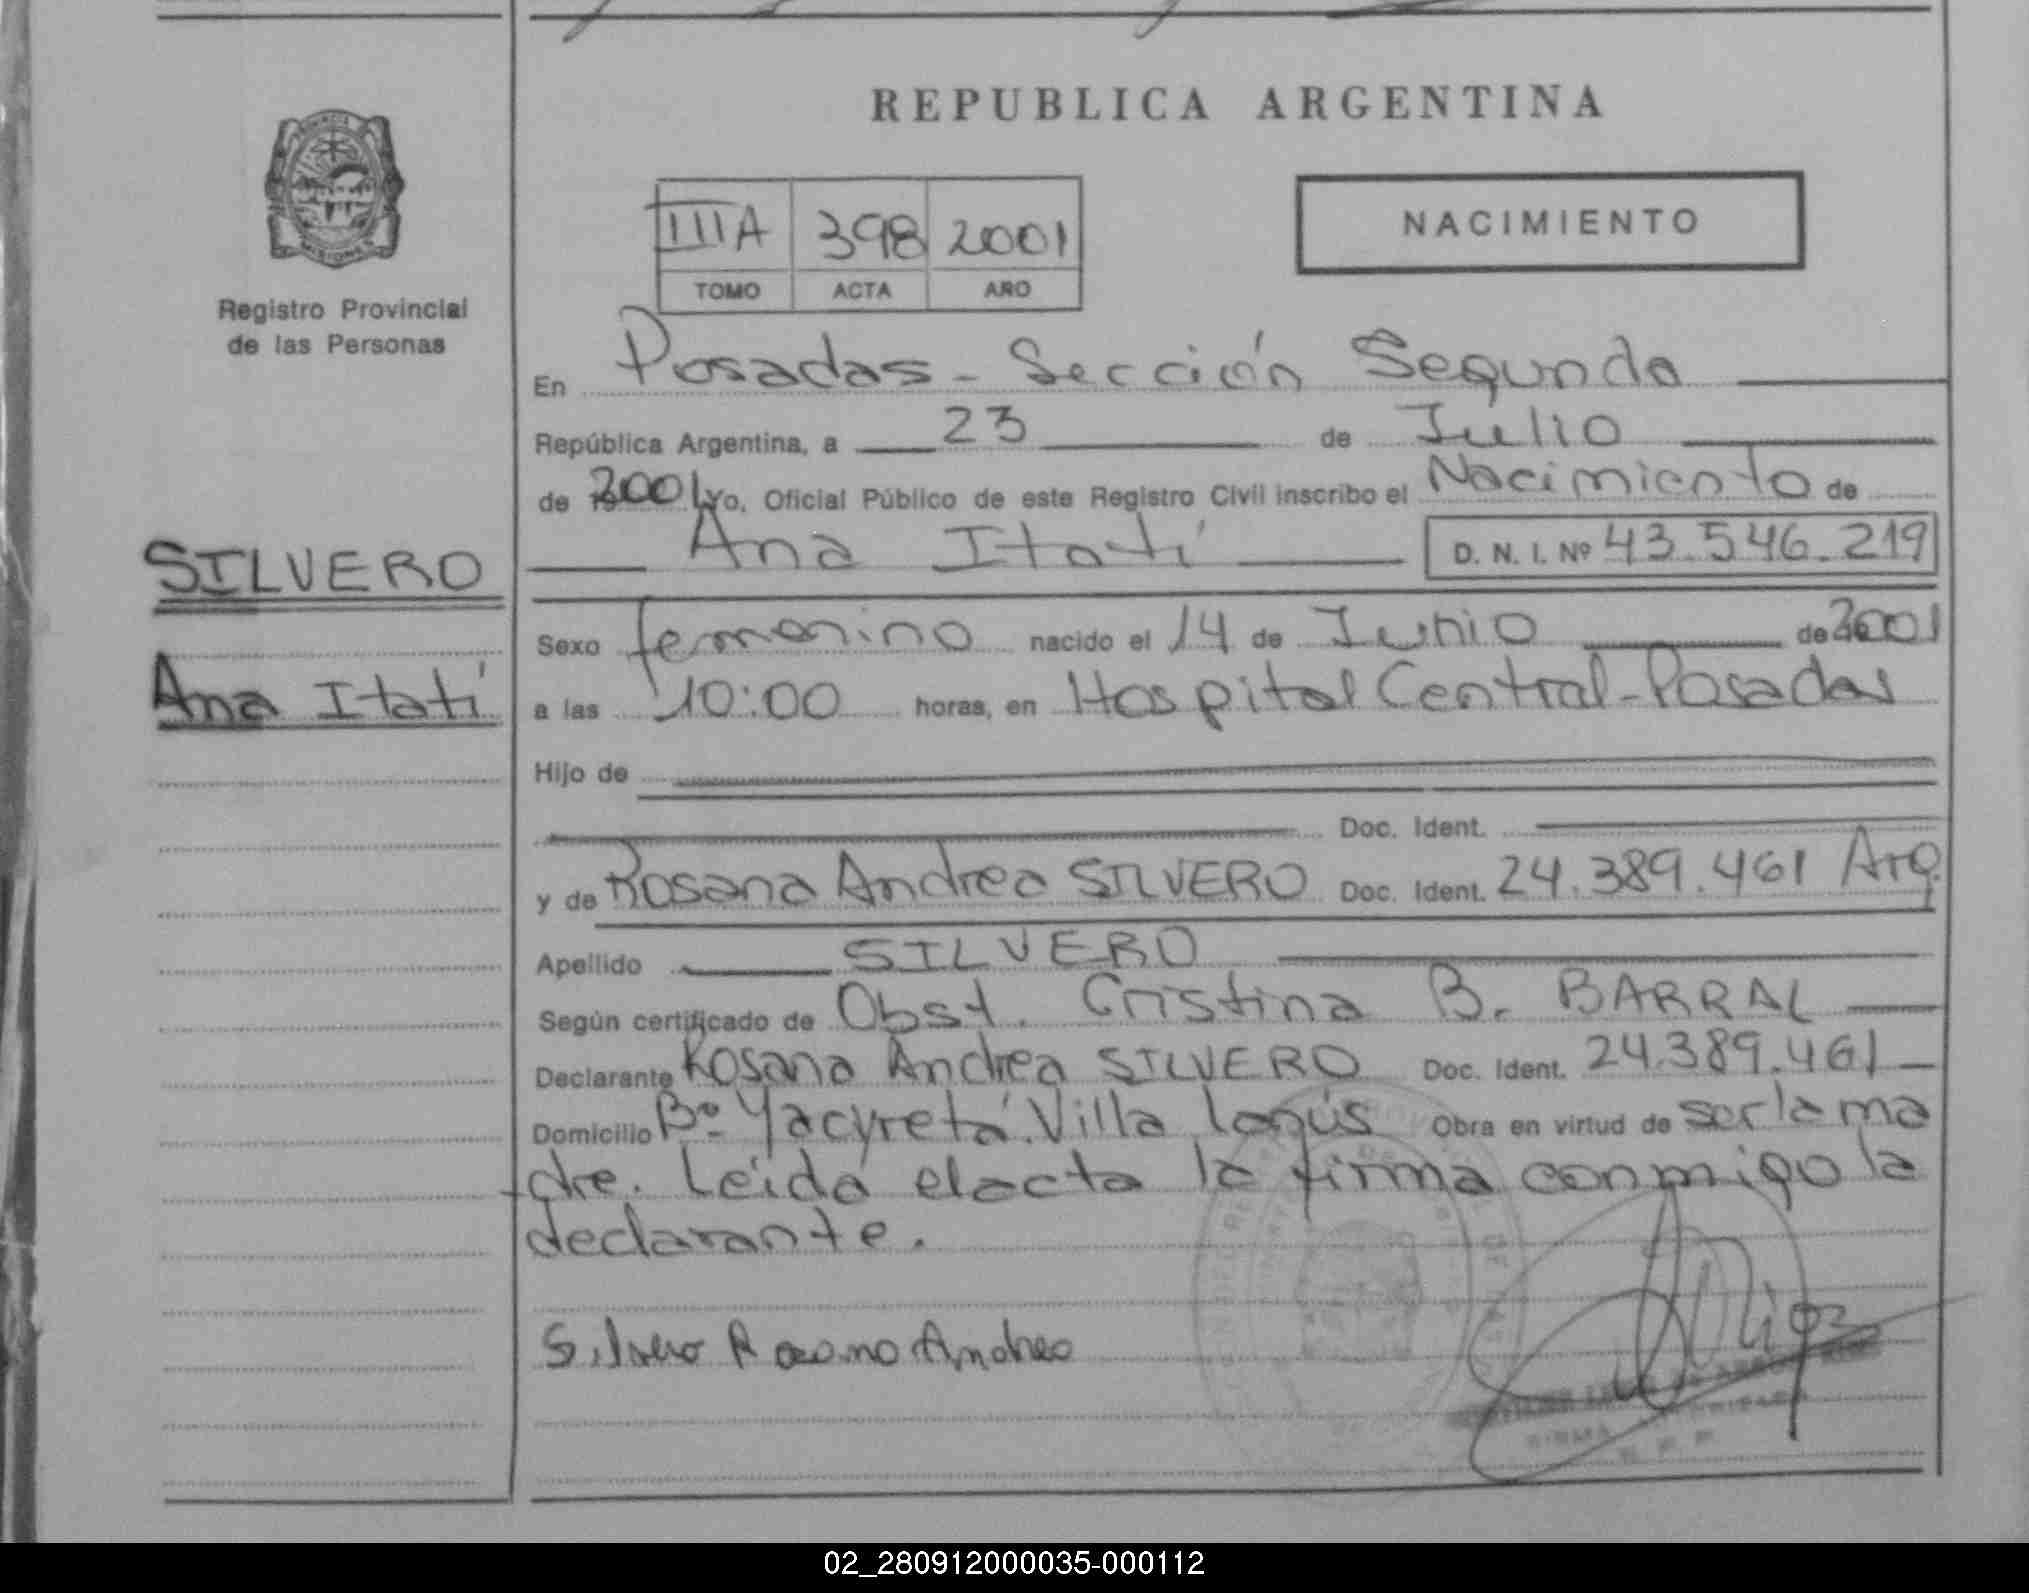 REPUBLICA ARGENTINA
PROVINCIA
MISIONES
Registro Provincial
de las Personas
IIIA 398 2001
TOMO ACTA AÑO
NACIMIENTO
En Posadas - Sección Segunda
República Argentina, a 23 de Julio
de 2001 Yo, Oficial Público de este Registro Civil inscribo el Nacimiento de
Ana Itatí D. N. I. Nº 43.546.219
SILVERO
Ana Itatí
Sexo femenino nacido el 14 de Junio de 2001
a las 10:00 horas, en Hospital Central - Posadas
Hijo de
Doc. Ident.
y de Rosana Andrea SILVERO Doc. Ident. 24.389.461 Arg.
Apellido SILVERO
Según certificado de Obst. Cristina B. BARRAL
Declarante Rosana Andrea SILVERO Doc. Ident. 24.389.461
Domicilio Bº Yacyretá. Villa Lanús Obra en virtud de ser la ma
dre. Leída el acta la firma conmigo la
declarante.
Silvero Rosana Andrea
FIRMA
02_280912000035-000112